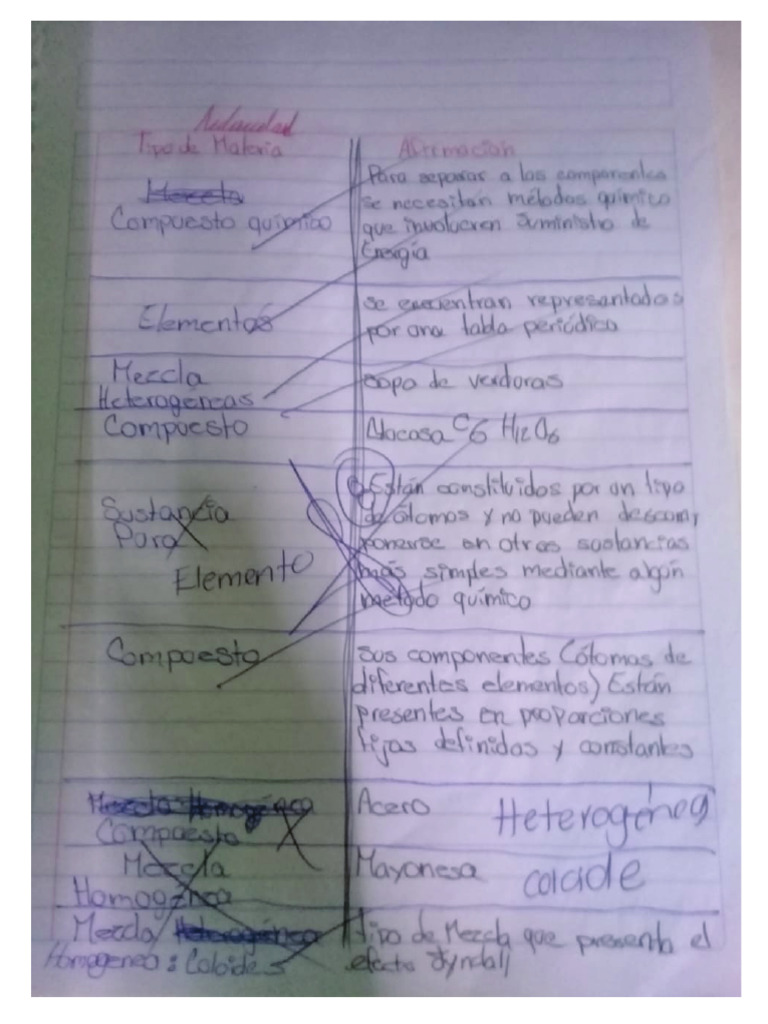 Tipo de Materia
Afirmación
Compuesto químico
Para separar a los componentes
se necesitan métodos químico
que involucren Suministro de
Energía
Elementos
se encuentran representados
por una tabla periódica
Mezcla
Heterogéneas
sopa de verduras
Compuesto
Glucosa C6 H12 O6
Sustancia
Pura
Elemento
Están constituidos por un tipo
de átomos y no pueden descom,
ponerse en otras sustancias
más simples mediante algún
metodo químico
Compuesto
sus componentes (átomos de
diferentes elementos) Están
presentes en proporciones
fijas definidas y constantes
Mezcla Homogénea
Compuesto
Acero
Heterogénea
Mezcla
Homogénea
Mayonesa
coloide
Mezcla Heterogénea
Homogeneo: Coloides
tipo de Mezcla que presenta el
efecto Tyndall